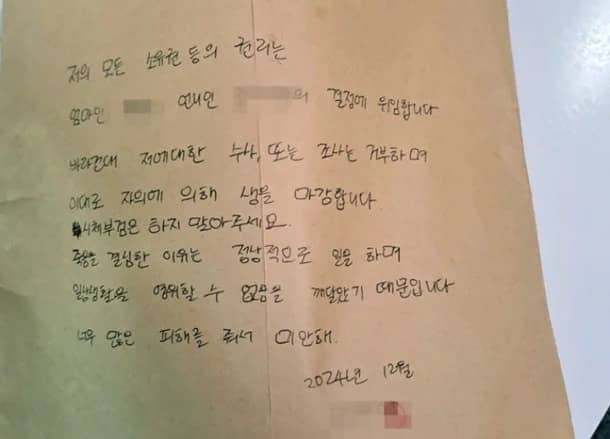 저의 모든 소유권 등의 권리는
엄마인 언니인 의 결정에 위임합니다
바라건대 저에대한 수사, 또는 조사는 거부하며
이대로 자의에 의해 생을 마감합니다.
시체부검은 하지 말아주세요.
죽음을 결심한 이유는 정상적으로 일을 하며
일상생활을 영위할 수 없음을 깨달았기 때문입니다
너무 많은 피해를 줘서 미안해.
2024년 12월